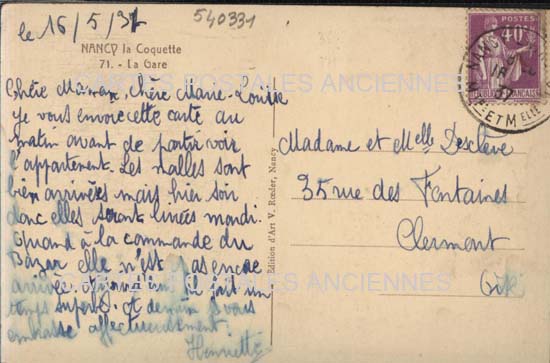 le 16/5/37
540331
NANCY la Coquette
71. - La Gare
Chère Maman, Chère Marie-Louise
Je vous envoie cette carte au
matin avant de partir voir
l'appartement. Les malles sont
bien arrivées mais hier soir
donc elles seront livrées mardi.
Quand à la commande du
Bazar elle n'est pas encore
arrivée il fait un
temps superbe et demain je vous
embrasse affectueusement.
Henriette
Edition d'Art V. Rœder, Nancy
POSTES
40c
NANCY
37
Mthe ET Melle
Madame et Melle Desclève
35 rue des Fontaines
Clermont
Oise
CARTES POSTALES ANCIENNES
CARTES POSTALES ANCIENNES